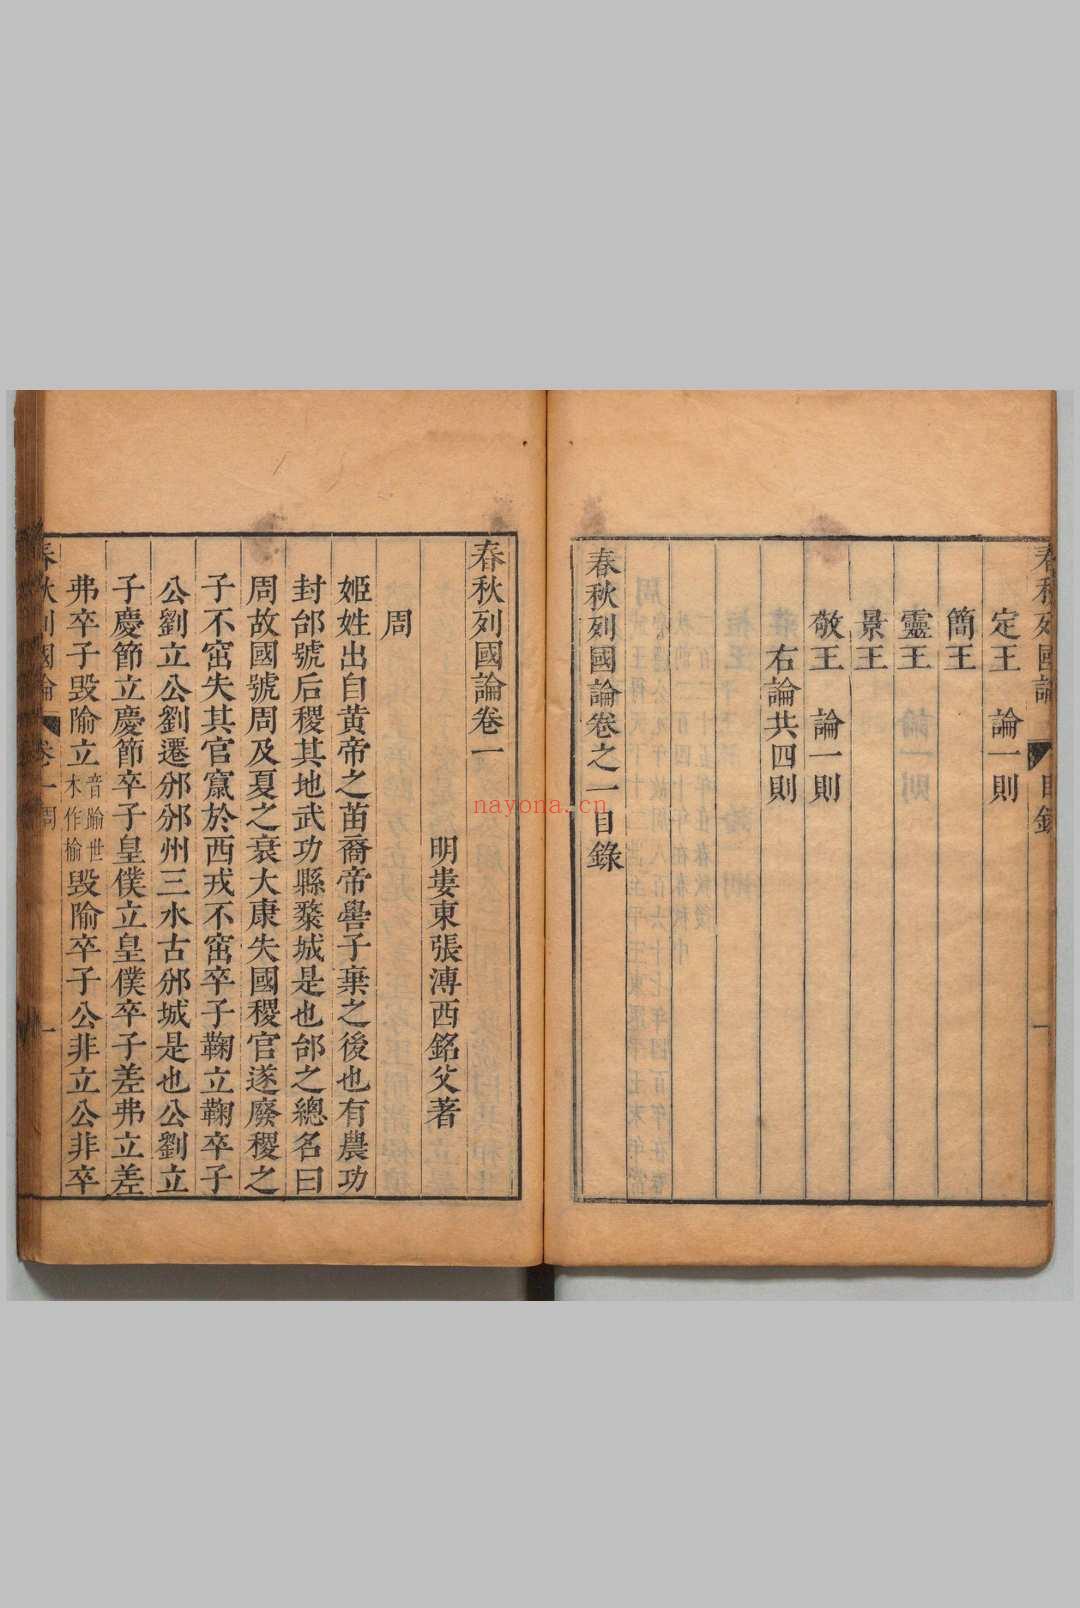 定王 論一則
簡王
靈王
景王
敬王 論一則
右論共四則
春秋列國論卷之一目錄
春秋列國論卷一
明婁東張溥西銘父著
周
姬姓出自黃帝之苗裔帝嚳子棄之後也有農功
封邰號后稷其地武功縣斄城是也邰之總名曰
周故國號周及夏之衰大康失國稷官遂廢稷之
子不窋失其官竄於西戎不窋卒子鞠立鞠卒子
公劉立公劉遷邠邠州三水古邠城是也公劉立
子慶節立慶節卒子皇僕立皇僕卒子差弗立差
弗卒子毀隃立音踰世本作榆毀隃卒子公非立公非卒
春秋列國論 卷一周 一
nayona.cn